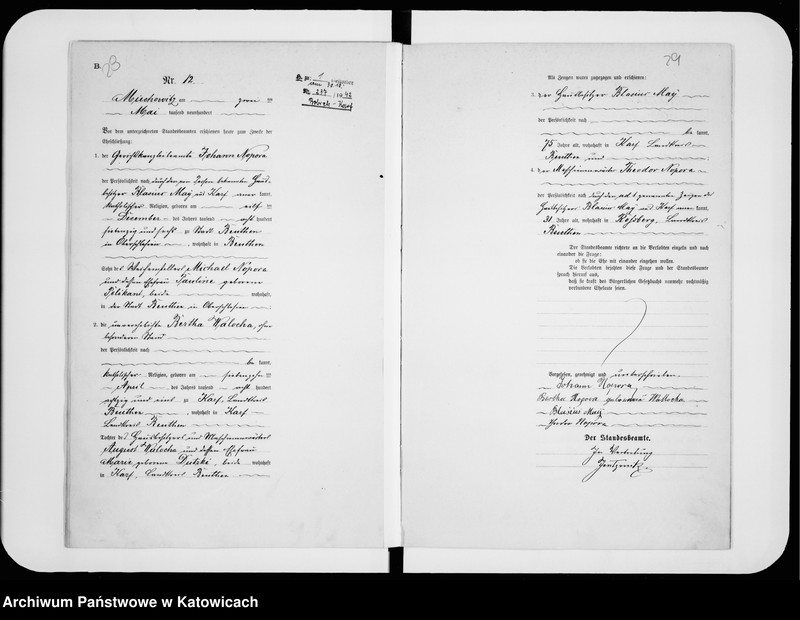 B.
Nr. 12
Miechowitz am zwei ten
Mai tausend neunhundert
Vor dem unterzeichneten Standesbeamten erschienen heute zum Zwecke der
Eheschließung:
1. der Gerichtskanzleibeamte Johann Nopora
der Persönlichkeit nach durch den von Person bekannten Haus-
besitzer Blasius Maÿ aus Karf aner kannt,
katholischer Religion, geboren am elf ten
December des Jahres tausend acht hundert
siebenzig und sechs zu Stadt Beuthen
in Oberschlesien, wohnhaft in Beuthen
Sohn des Michael Nopora
und dessen Ehefrau Pauline geborene
Pelikant, beide wohnhaft
in der Stadt Beuthen in Oberschlesien
2. die unverehelichte Bertha Walocha, ohne
besonderen Stand
der Persönlichkeit nach
be kannt,
katholischer Religion, geboren am siebenzehn ten
April des Jahres tausend acht hundert
achtzig und eins zu Karf, Landkreis
Beuthen, wohnhaft in Karf
Landkreis Beuthen
Tochter des Hausbesitzers und Maschinenwärters
August Walocha und dessen Ehefrau
Marie geborene beide wohnhaft
in Karf, Landkreis Beuthen
29
Als Zeugen waren zugezogen und erschienen:
3. der Hausbesitzer Blasius Maÿ
der Persönlichkeit nach
be kannt,
75 Jahre alt, wohnhaft in Karf Landkreis
Beuthen und
4. der Maschinenwärter Theodor Nopora
der Persönlichkeit nach durch den ad 1 genannten Zeugen
Hausbesitzer Blasius Maÿ aus Karf aner kannt,
31 Jahre alt, wohnhaft in Roßberg, Landkreis
Beuthen
Der Standesbeamte richtete an die Verlobten einzeln und nach
einander die Frage:
ob sie die Ehe mit einander eingehen wollen.
Die Verlobten bejahten diese Frage und der Standesbeamte
sprach hierauf aus,
daß sie kraft des Bürgerlichen Gesetzbuchs nunmehr rechtmäßig
verbundene Eheleute seien.
Vorgelesen, genehmigt und unterschrieben
Johann Nopora
Bertha Nopora geborene Wallocha
Blasius Maÿ
Theodor Nopora
Der Standesbeamte.
In Vertretung
Archiwum Państwowe w Katowicach